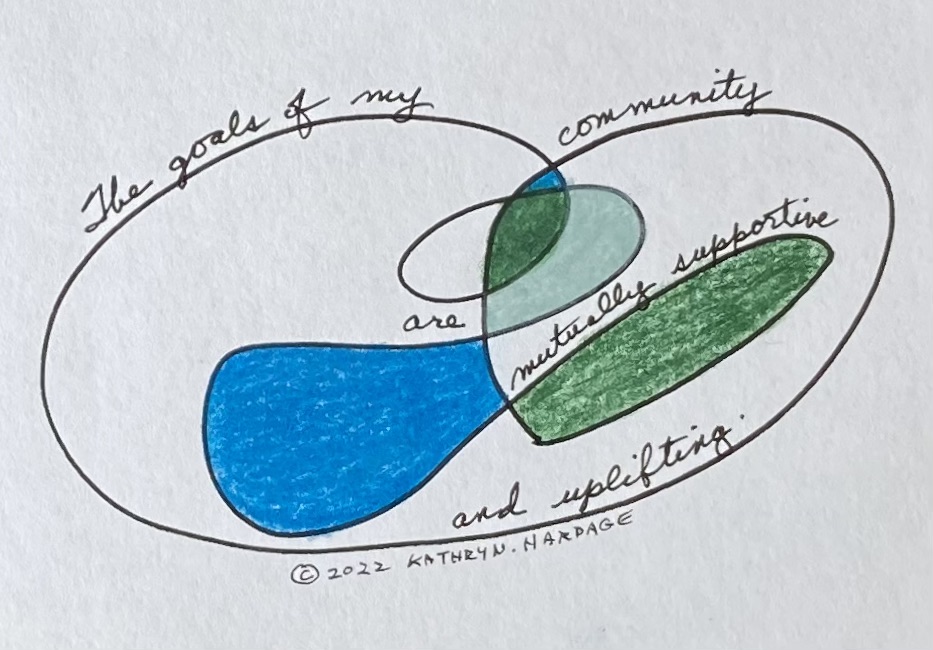 The goals of my
community
are
mutually supportive
and uplifting.
© 2022 KATHRYN. HARDAGE